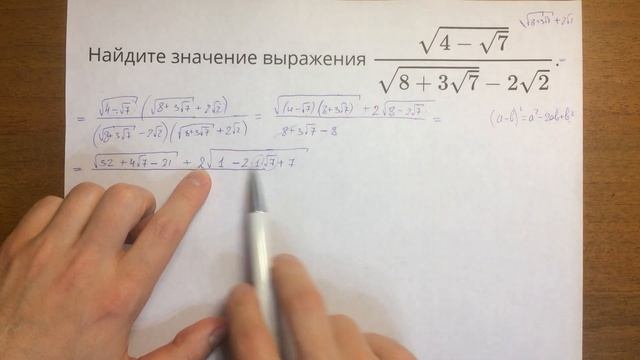 √(8+3√7) + 2√2
Найдите значение выражения √(4 − √7) / (√(8 + 3√7) − 2√2).
= √(4−√7) (√(8+3√7) + 2√2) / ((√(8+3√7) − 2√2)(√(8+3√7) + 2√2)) = (√((4−√7)(8+3√7)) + 2√(8−2√7)) / (8+3√7−8) =
(a−b)² = a² − 2ab + b²
= √(32 + 4√7 − 21) + 2√(1 − 2·1·√7 + 7)